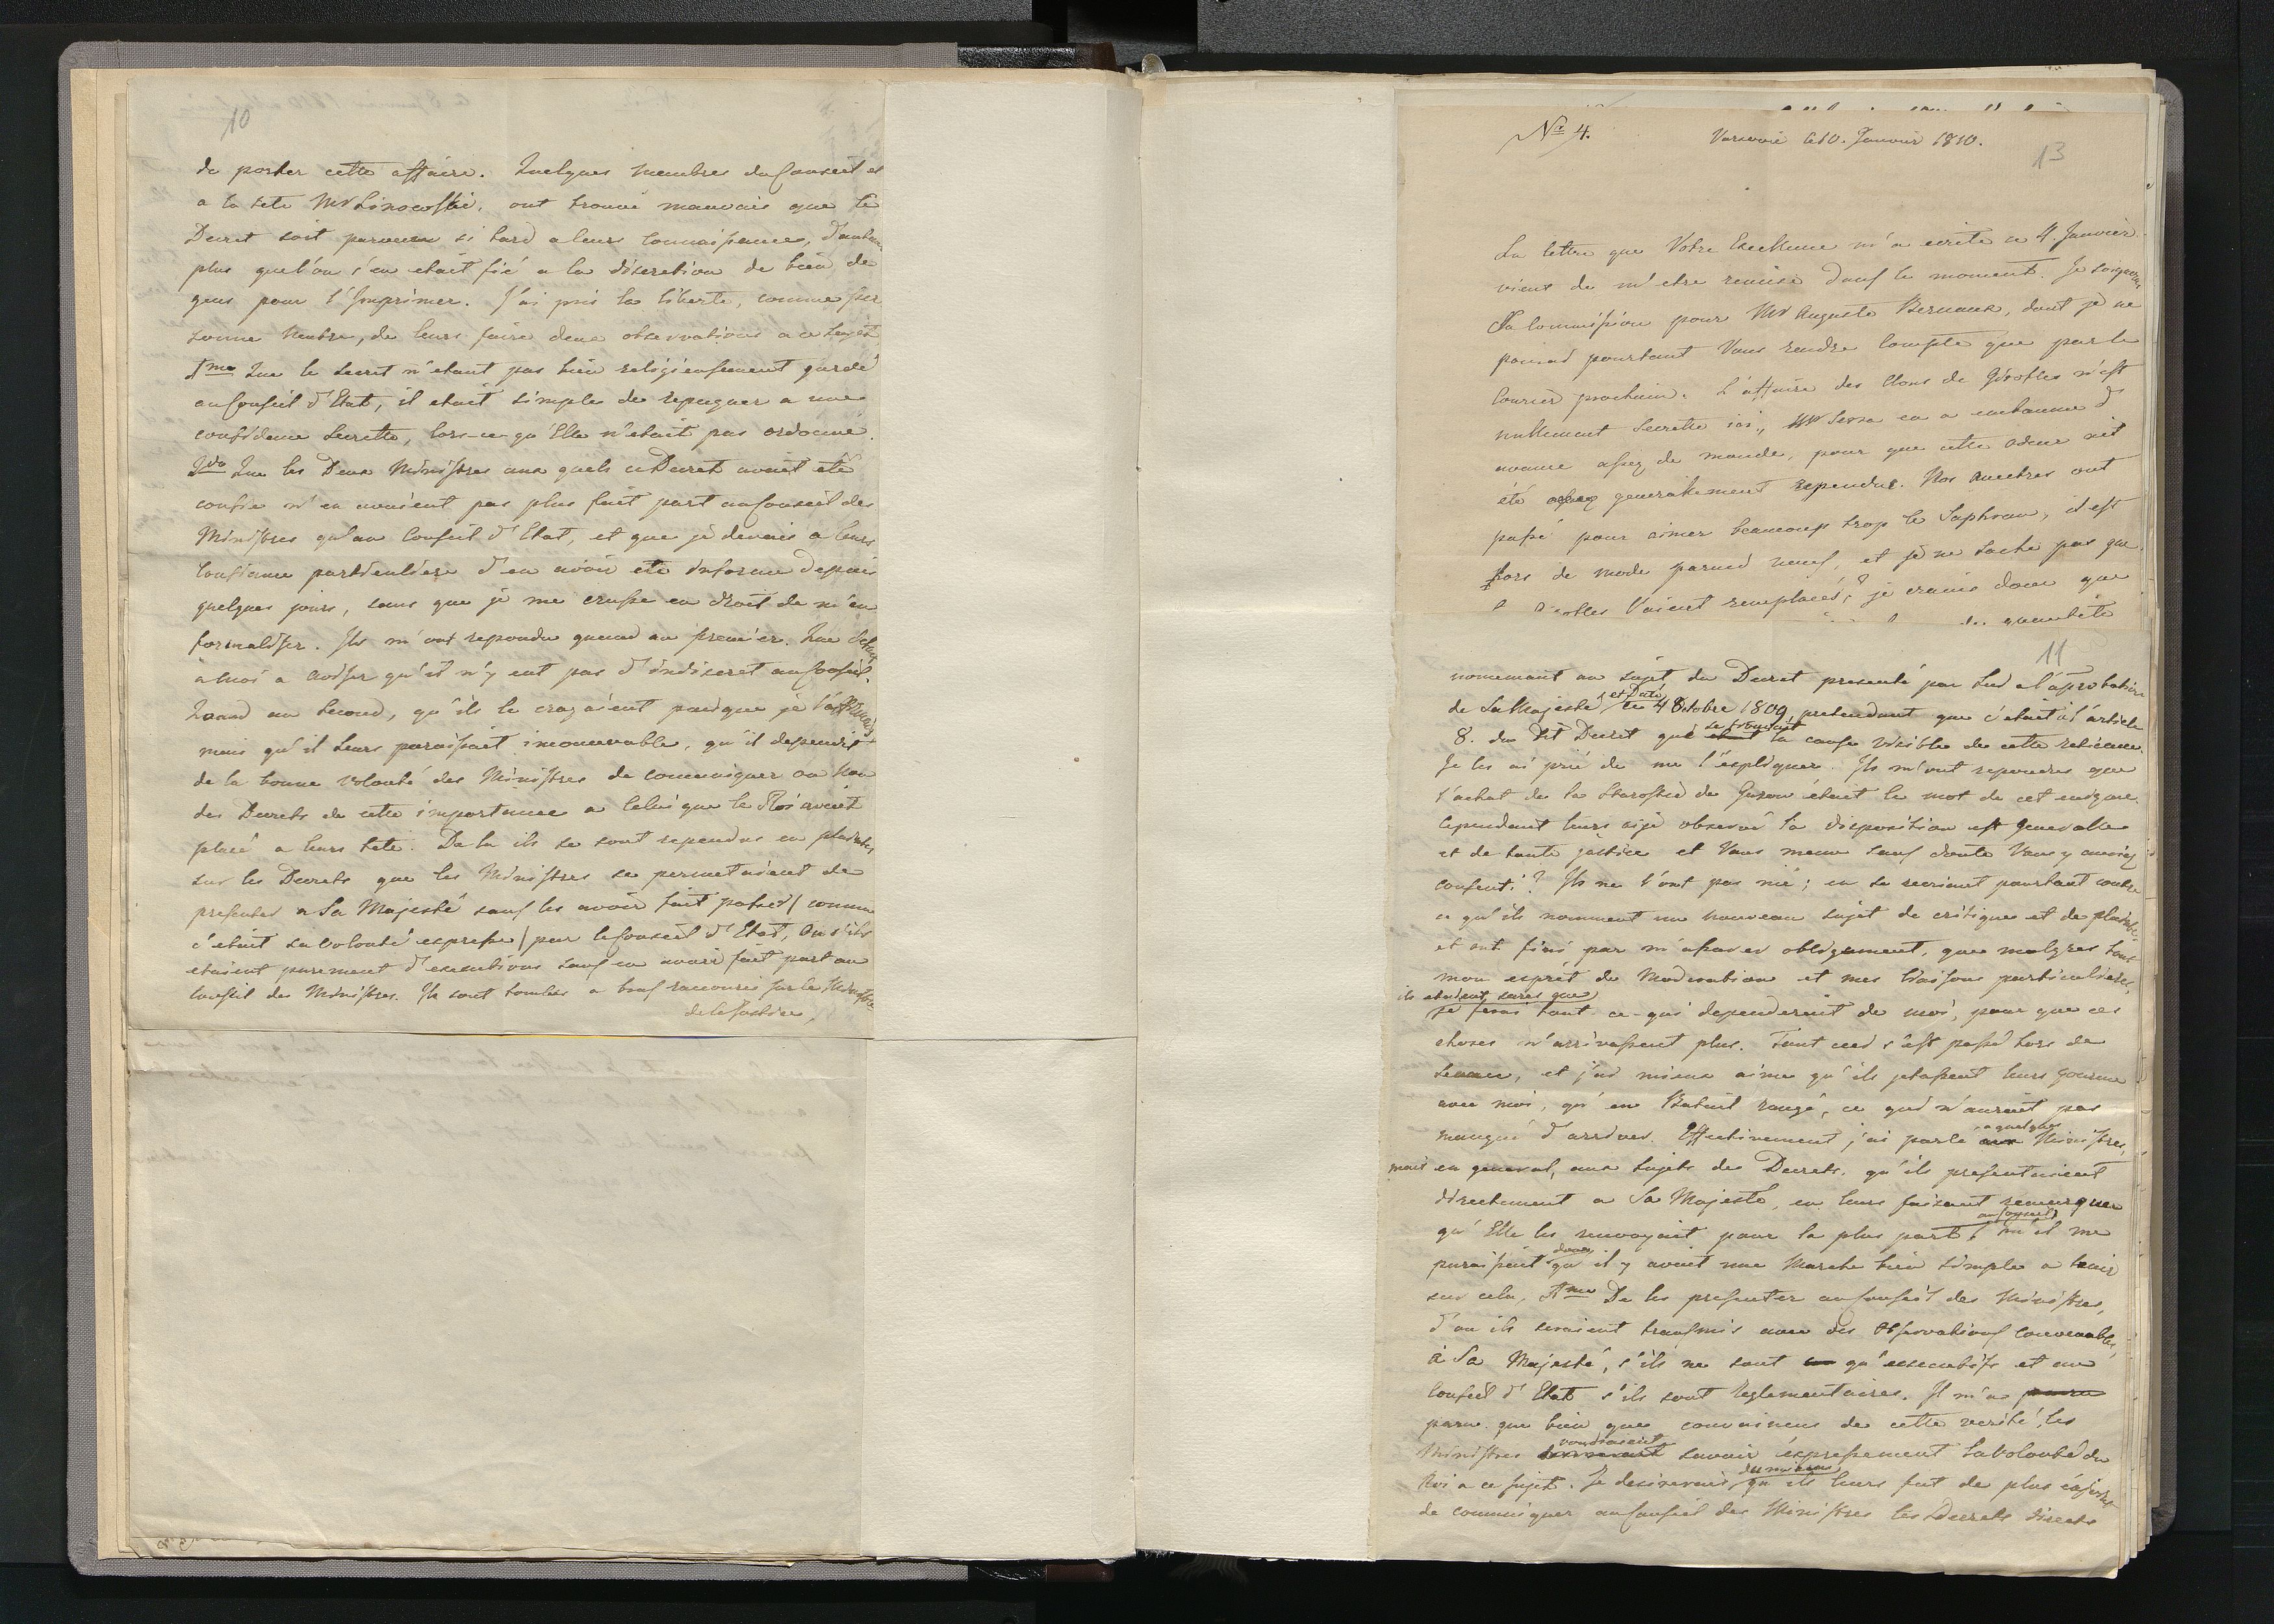 10
de porter cette affaire. Quelques membres du Conseil et
a la tete Mr Linowski, ont trouvé mauvais que le
Decret soit parvenu si tard a leurs connaissance, d'autant
plus que l'on s'en etait fié a la discretion de bien de
gens pour l'Imprimer. J'ai pris la liberté, comme per
sonne neutre, de leurs faire deux observations a ce sujet
1mo Que le secret n'etant pas bien religieusement gardé
au Conseil d'Etat, il etait simple de repugner a une
confidence secrette, lors-ce-qu'Elle n'etait pas ordonné.
2do Que les Deux Ministres aux quels ce Decret avait été
confié n'en avoient pas plus fait part au Conseil des
Ministres qu'au Conseil d'Etat, et que je devais a leurs
confiance particuliere d'en avoir été informé depuis
quelques jours, sans que je me crusse en droit de m'en
formaliser. Ils m'ont repondu quand au premier. Que c'etait
à moi a aviser qu'il n'y eut pas d'indiscret au Conseil.
Quand au second, qu'ils le croyaient puisque je l'affirmais
mais qu'il leurs paraissait inconcevable, qu'il dependit
de la bonne volonté des Ministres de communiquer ou non
des Decrets de cette importance a celui que le Roi avait
placé a leurs tete. De la ils se sont rependus en plaintes
sur les Decrets que les Ministres se permetaient de
presenter a Sa Majesté sans les avoir fait passer / comme
c'etait sa volonté expresse / par le Conseil d'Etat, ou s'ils
etaient purement d'executions sans en avoir fait part au
Conseil des Ministres. Ils sont tombés a bras raccourcis sur le Ministre
de la Justice,
No 4.
Varsovie ce 10. Janvier 1810.
13
La lettre que Votre Excellence m'a ecrite ce 4. Janvier
vient de m'etre remise dans le moment. Je soignerai
Sa commission pour Mr Auguste Bernaux, dont je ne
pourrai pourtant Vous rendre compte que par le
Courier prochain. L'affaire des Clous de Girofles n'est
nullement secrette ici, Mr Serra en a embaumé d
avance assez de monde, pour que cette odeur ait
été assez generalement rependue. Nos ancetres ont
passé pour aimer beaucoup trop le Saphran, il est
hors de mode parmi nous, et je ne sache pas que
l Girofles l'aient remplacés, je crains donc que
quantité
11
nommement au sujet du Decret presenté par Lui a l'aprobation
de Sa Majesté et Daté ce 4 8tobre 1809, pretendant que c'etait a l'article
8. du dit Decret que se trouvait la cause visible de cette reticence.
Je les ai prié de me l'expliquer. Ils m'ont repondus que
l'achat de la Starostie de Guzow était le mot de cet enigme.
Cependant leurs aije observé la disposition est generalle
et de toute justice et Vous meme sans doute Vous y auriez
consenti? Ils ne l'ont pas nié; en se recriant pourtant contre
ce qu'ils nomment un nouveau sujet de critiques et de plaintes
et ont fini par m'assurer obligeament, que malgres tout
mon esprit de Moderation et mes liaisons particulieres,
ils etoient surs que
je ferai tout ce-qui dependerait de moi, pour que ces
choses n'arrivassent plus. Tout ceci s'est passé hors de
seance, et j'ai mieux aimé qu'ils jetassent leurs gourme
avec moi, qu'en Bataill rangé, ce qui n'aurait pas
manqué d'arriver. Effectivement j'ai parlé a quelques Ministres,
mais en general, aux sujets des Decrets, qu'ils presentaient
directement a Sa Majesté, en leurs faisant remarquer
qu'Elle les renvoyait pour la plus part au Conseil, qu'il me
paraissait donc qu'il y avait une Marche bien simple a tenir
sur cela, 1mo De les presenter au Conseil des Ministres,
d'ou ils seraient transmis avec des observations convenables,
à Sa Majesté, s'ils ne sont qu'executifs et au
Conseil d'Etat s'ils sont reglementaires. Il m'a
parue que bien que convaincus de cette verité, les
Ministres voudraient savoir expressement la Volonté du
Roi a ce sujet. Je desirerais du moins qu'ils leurs fut de plus enjoint
de communiquer au Conseil des Ministres les Decrets directs